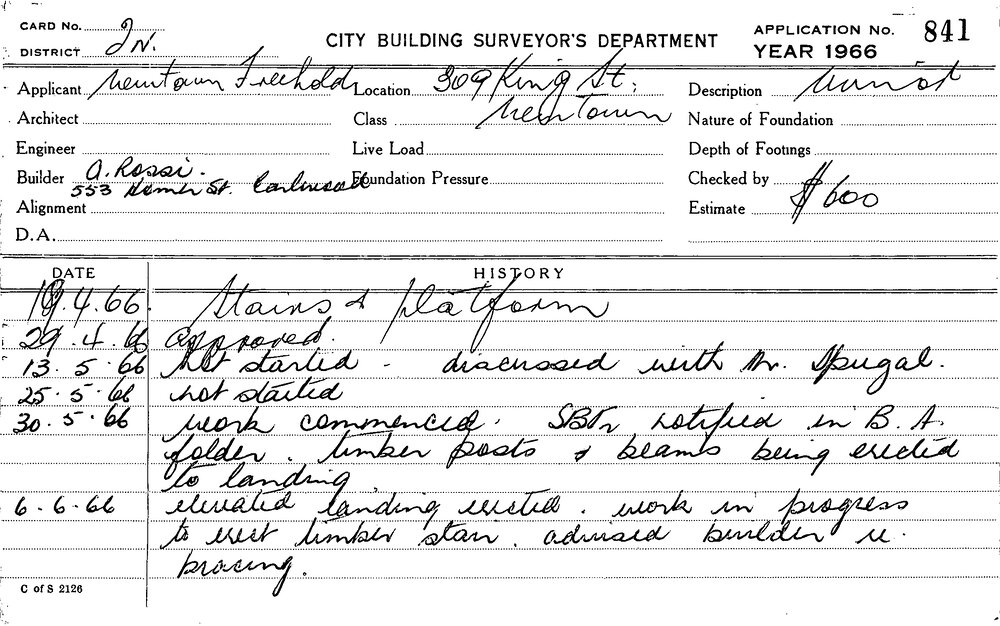 CARD No.
DISTRICT 2N.
CITY BUILDING SURVEYOR'S DEPARTMENT
APPLICATION No. 841
YEAR 1966
Applicant Newtown Freeholds
Location 309 King St.
Newtown
Description
Architect
Class
Nature of Foundation
Engineer
Live Load
Depth of Footings
Builder A. Rossi.
553 Homer St. Earlwood
Foundation Pressure
Checked by
Alignment
Estimate $600
D.A.
DATE HISTORY
19.4.66. Stairs & platform
29.4.66 Approved.
13.5.66 Not started - discussed with Mr.
25.5.66 not started
30.5.66 work commenced. notified in B.A.
folder. timber posts & beams being erected
to landing
6.6.66 elevated landing erected. work in progress
to erect timber stair. advised builder re.
bracing.
C of S 2126